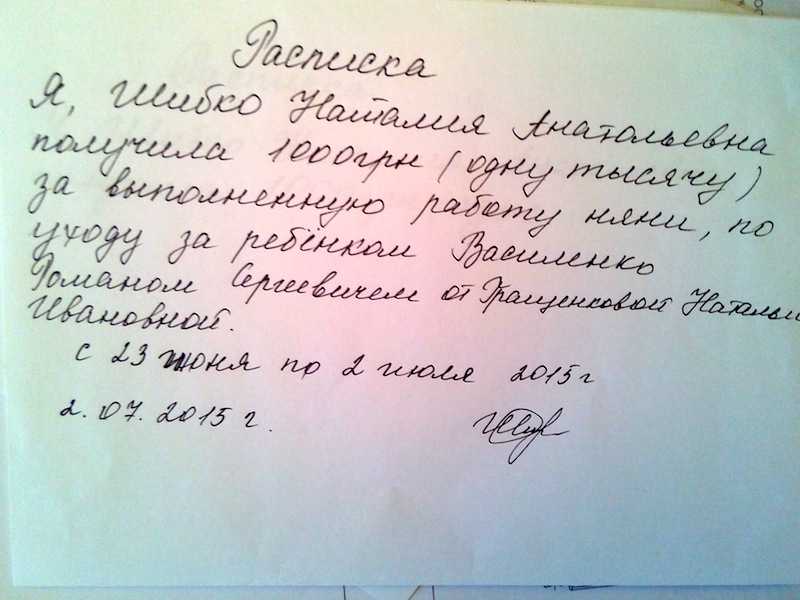 Расписка
Я, Шибко Наталия Анатольевна
получила 1000грн (одну тысячу)
за выполненную работу няни, по
уходу за ребёнком Василенко
Романом Сергеевичем от Гращенковой Натальи
Ивановной.
с 23 июня по 2 июля 2015г
2. 07. 2015 г.